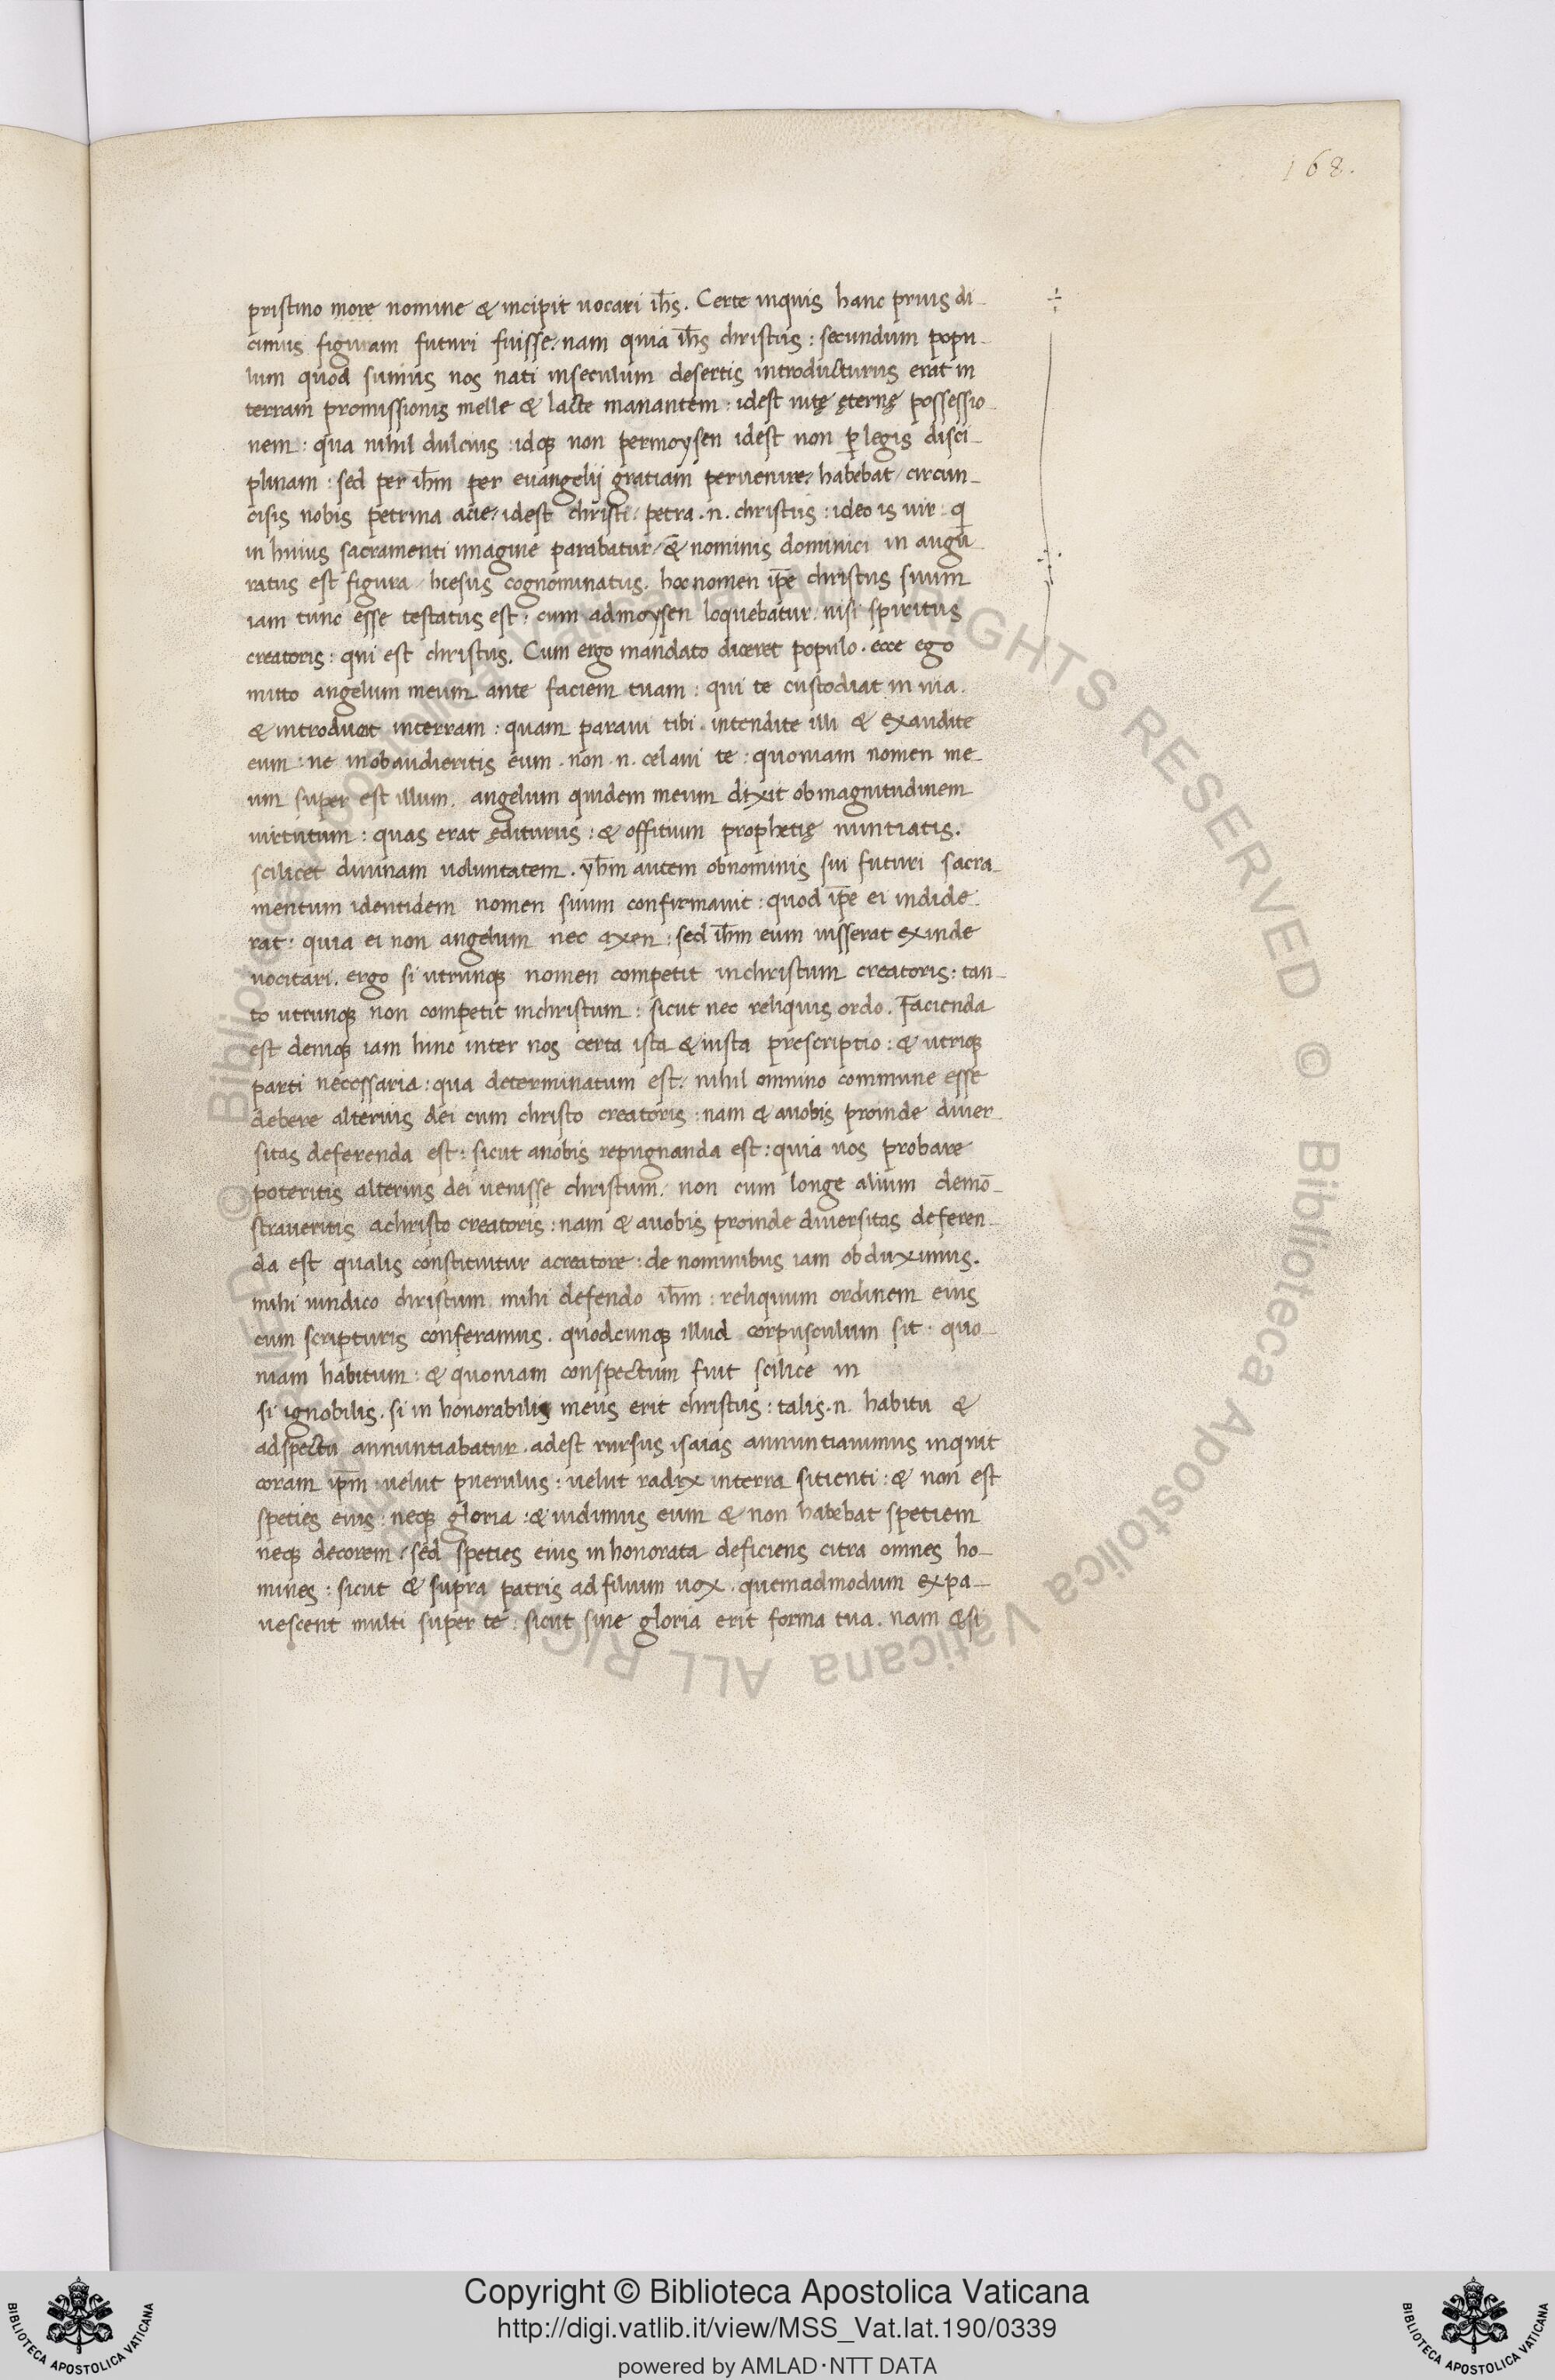 168.
pristino more nomine & incipit uocari ih̄s. Certe inquis hanc prius di-
cimus figuram futuri fuisse: nam quia ih̄s christus: secundum popu-
lum quod sumus nos nati inseculum desertis introducturus erat in
terram promissionis melle & lacte manantem: idest uitę ęternę possessio-
nem: qua nihil dulcius: idq; non permoysen idest non p̱ legis disci-
plinam: sed per ih̄m per euangelij gratiam peruenire: habebat/ circun-
cisis nobis petrina acie/ idest christi: petra .n. christus: ideo is uir: q
in huius sacramenti imagine parabatur/ & nominis dominici in augu
ratus est figura/ hiesus cognominatus. hoc nomen ip̄e christus suum
iam tunc esse testatus est: cum admoysen loquebatur. nisi spiritus
creatoris: qui est christus. Cum ergo mandato diceret populo. ecce ego
mitto angelum meum ante faciem tuam: qui te custodiat in uia.
& introducat interram: quam paraui tibi. intendite illi & exaudite
eum: ne inobaudieritis eum. non .n. celaui te: quoniam nomen me-
um super est illum. angelum quidem meum dixit obmagnitudinem
uirtutum: quas erat ęditurus: & offitium prophetię nuntiatis.
scilicet diuinam uoluntatem. yh̄m autem obnominis sui futuri sacra-
mentum identidem nomen suum confirmauit: quod ip̄e ei indide
rat: quia ei non angelum nec axen: sed ih̄m eum iusserat exinde
uocitari. ergo si utrunq; nomen competit inchristum creatoris: tan-
to utrunq; non competit inchristum: sicut nec reliquis ordo. Facienda
est deniq; iam hinc inter nos certa ista & iusta prescriptio: & utriq;
parti necessaria: qua determinatum est: nihil omnino commune esse
debere alterius dei cum christo creatoris: nam & auobis proinde diuer
sitas deferenda est: sicut anobis repugnanda est: quia uos probare
poteritis alterius dei uenisse christum. non cum longe alium demō-
straueritis achristo creatoris: nam & auobis proinde diuersitas deferen-
da est qualis constituitur acreatore: de nominibus iam obduximus.
mihi uindico christum. mihi defendo ih̄m: reliquum ordinem eius
cum scripturis conferamus. quodcunq; illud corpusculum sit: quo-
niam habitum: & quoniam conspectum fuit scilice in
si ignobilis. si in honorabilis meus erit christus: talis .n. habitu &
adspectu annuntiabatur. adest rursus isaias annuntiauimus inquit
coram ip̄m: uelut puerulus: uelut radix interra sitienti: & non est
speties eius: neq; gloria: & uidimus eum & non habebat spetiem
neq; decorem: sed speties eius inhonorata deficiens citra omnes ho-
mines: sicut & supra patris ad filium uox. quemadmodum expa-
uescent multi super te: sicut sine gloria erit forma tua. nam &si
Copyright © Biblioteca Apostolica Vaticana
http://digi.vatlib.it/view/MSS_Vat.lat.190/0339
powered by AMLAD·NTT DATA